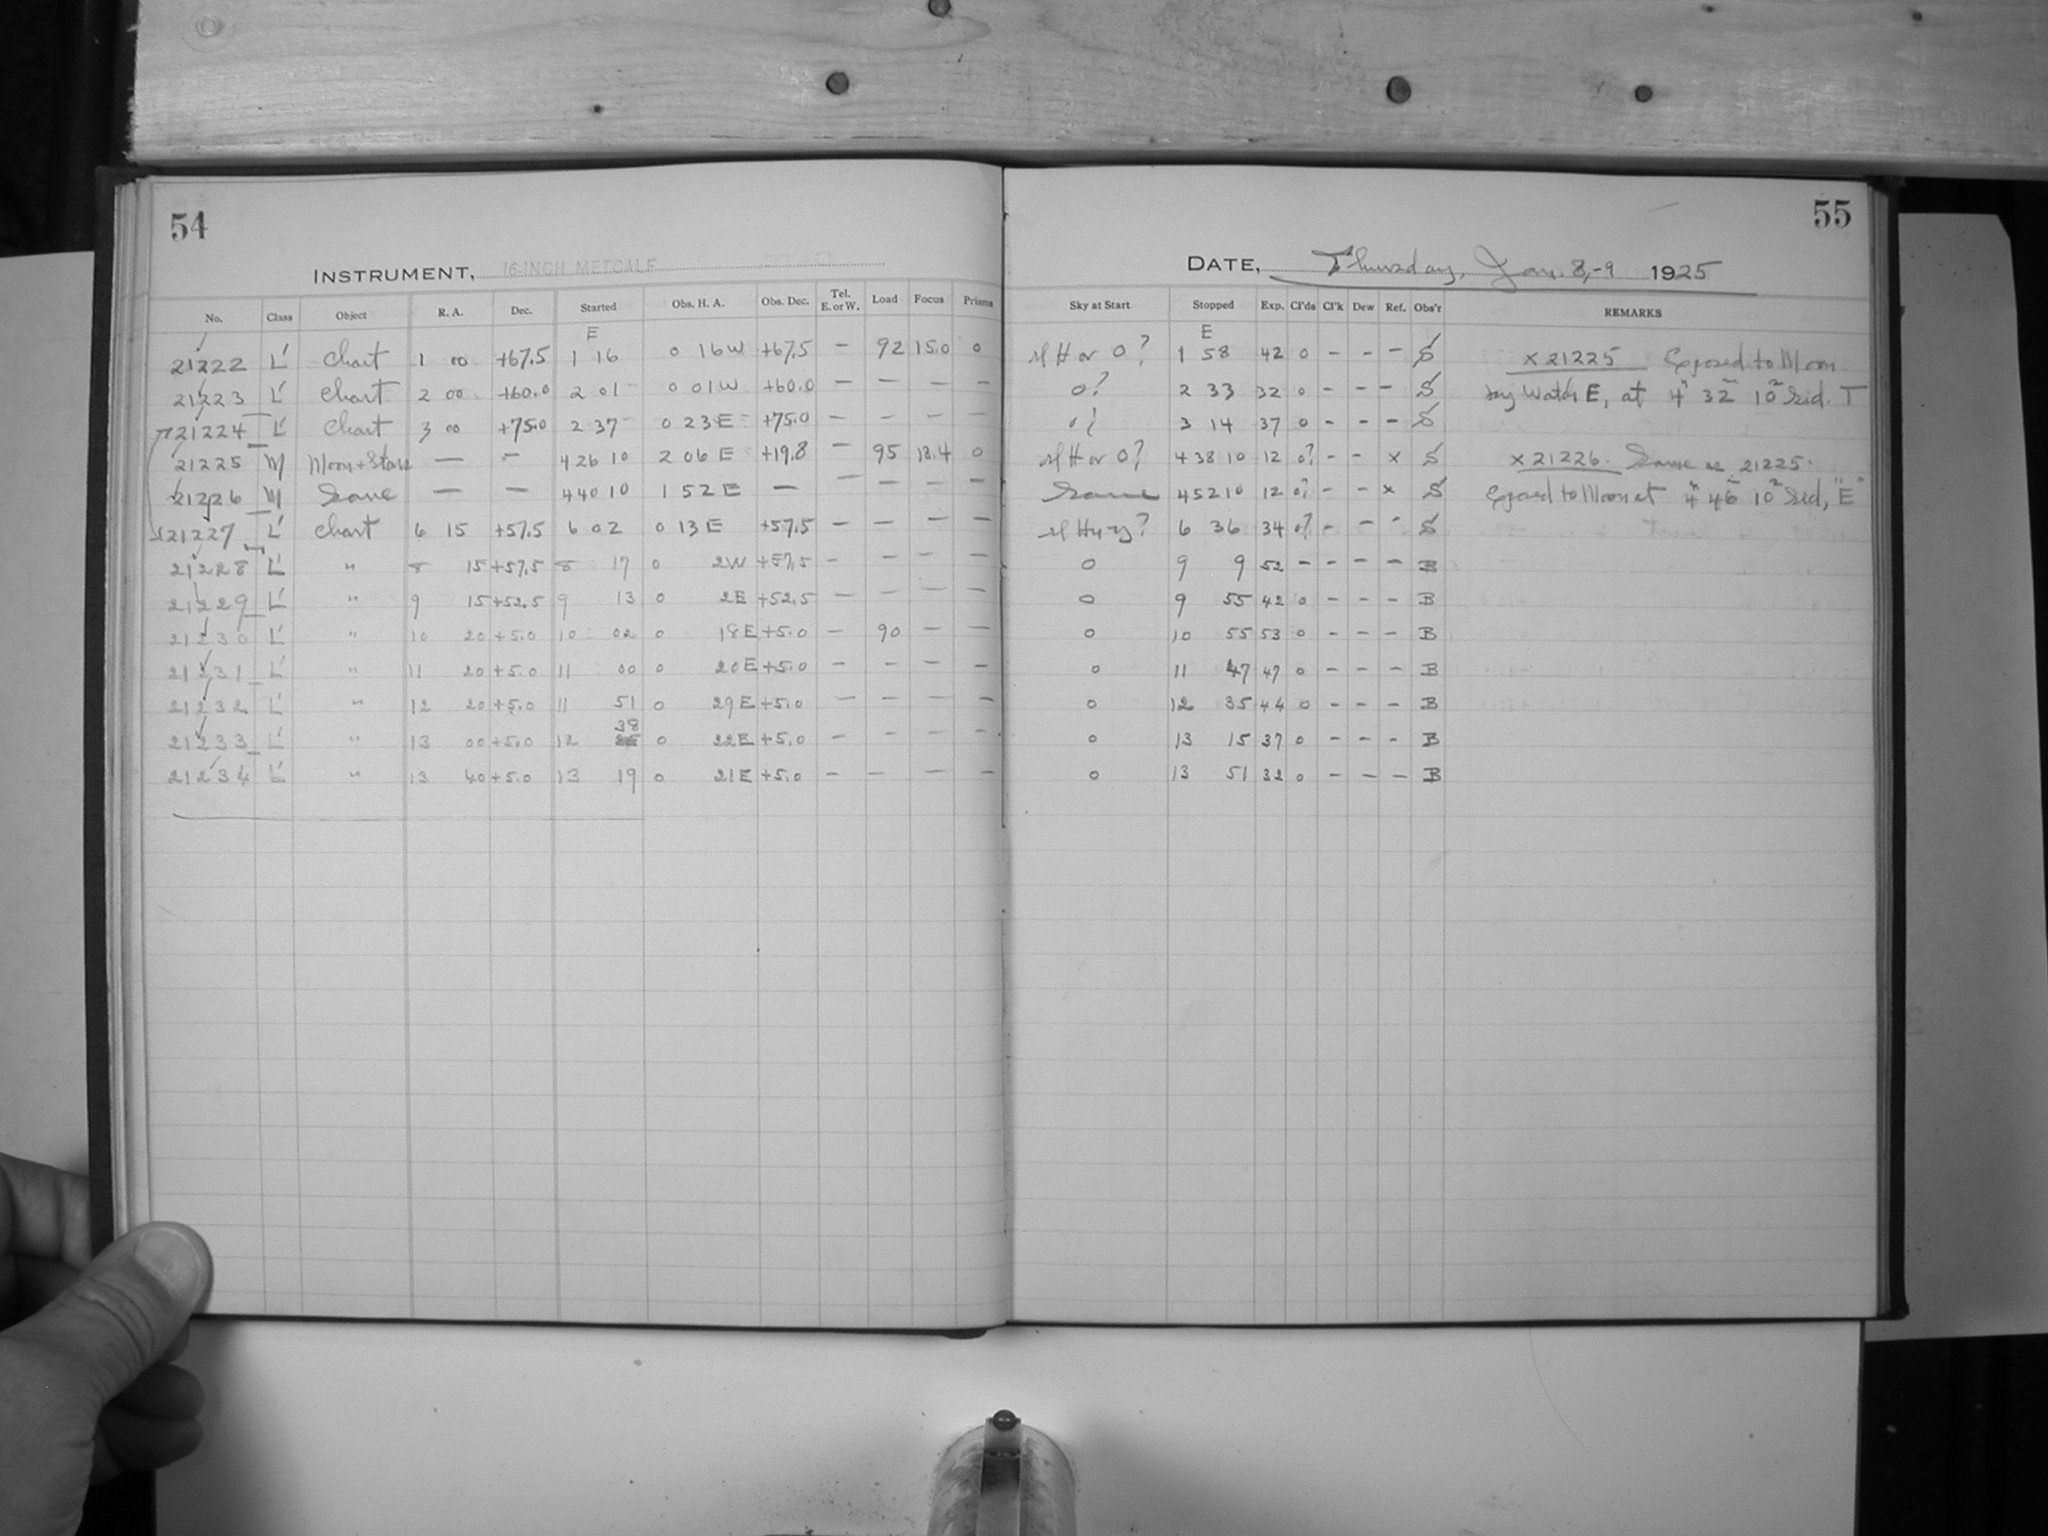 54
INSTRUMENT, 16-INCH METCALF
No. Class Object R. A. Dec. Started Obs. H. A. Obs. Dec. Tel. E. or W. Load Focus Prisms
E
21222 L' Chart 1 00 +67.5 1 16 0 16W +67.5 — 92 15.0 0
21223 L' Chart 2 00 +60.0 2 01 0 01W +60.0 — — — —
21224 L' Chart 3 00 +75.0 2 37 0 23E +75.0 — — — —
21225 M Moon + Stars — — 4 26 10 2 06 E +19.8 — 95 18.4 0
21226 M Same — — 4 40 10 1 52 E — — — — —
21227 L' Chart 6 15 +57.5 6 02 0 13 E +57.5 — — — —
21228 L' " 8 15 +57.5 8 17 0 2W +57.5 — — — —
21229 L' " 9 15 +52.5 9 13 0 2E +52.5 — — — —
21230 L' " 10 20 +5.0 10 02 0 18E +5.0 — 90 — —
21231 L' " 11 20 +5.0 11 00 0 20E +5.0 — — — —
21232 L' " 12 20 +5.0 11 51 0 29E +5.0 — — — —
21233 L' " 13 00 +5.0 12 38 0 22E +5.0 — — — —
21234 L' " 13 40 +5.0 13 19 0 21E +5.0 — — — —
55
DATE, Thursday, Jan. 8,-9 1925
Sky at Start Stopped Exp. Cl'ds Cl'k Dew Ref. Obs'r REMARKS
E
sl H or 0? 1 58 42 0 — — — S x 21225 Exposed to Moon
0? 2 33 32 0 — — — S by Watch E, at 4h 32m 10s Sid. T
0? 3 14 37 0 — — — S
sl H or 0? 4 38 10 12 0? — — x S x 21226. Same as 21225.
Same 4 52 10 12 0? — — x S Exposed to Moon at 4h 46m 10s Sid, "E"
sl Hazy? 6 36 34 0? — — — S
0 9 9 52 — — — — B
0 9 55 42 0 — — — B
0 10 55 53 0 — — — B
0 11 47 47 0 — — — B
0 12 35 44 0 — — — B
0 13 15 37 0 — — — B
0 13 51 32 0 — — — B